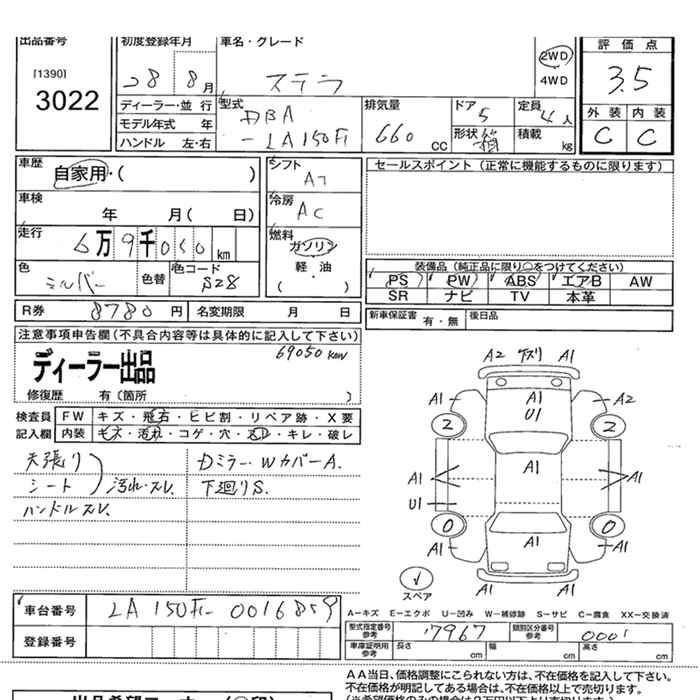 出品番号 初度登録年月 車名・グレード 評価点
[1390] 3022
28 8月 ステラ 2WD 4WD 3.5
ディーラー・並行 型式 DBA 排気量 ドア 5 定員 4人
モデル年式 年 -LA150F 660 CC 形状 積載 kg 外装 内装
ハンドル 左・右 C C
車歴 自家用・( ) シフト AT セールスポイント(正常に機能するものに限ります)
車検 年 月( 日) 冷房 AC
走行 6万9千050km 燃料 ガソリン
軽油
( )
色 シルバー 色替 色コード S28
装備品(純正品に限り○をつけてください)
PS PW ABS エアB AW
SR ナビ TV 本革
R券 8780円 名変期限 月 日 新車保証書 有・無 後日品
注意事項申告欄(不具合内容等は具体的に記入して下さい)
69050km
ディーラー出品
修復歴 有(箇所 )
検査員 FW キズ・飛石・ヒビ割・リペア跡・X要
記入欄 内装 コゲ・穴・キレ・破レ
天張り Dミラー・WカバーA.
シート 汚れ・スレ 下廻りS.
ハンドルスレ
A2 A1
A1 A1 U1 A2
2 2
A1 A1 A1
U1
0 0
A1 A1 A1
A1
スペア
車台番号 LA150F-0016859
登録番号
A-キズ E-エクボ U-凹み W-補修跡 S-サビ C-腐食 XX-交換済
型式指定番号 参考 17967 類別区分番号 参考 0001
車庫証明用 参考 長さ cm 幅 cm 高さ cm
AA当日、価格調整にこられない方は、不在価格を記入して下さい。
不在価格が明記してある場合は、不在価格以上で売切ります。